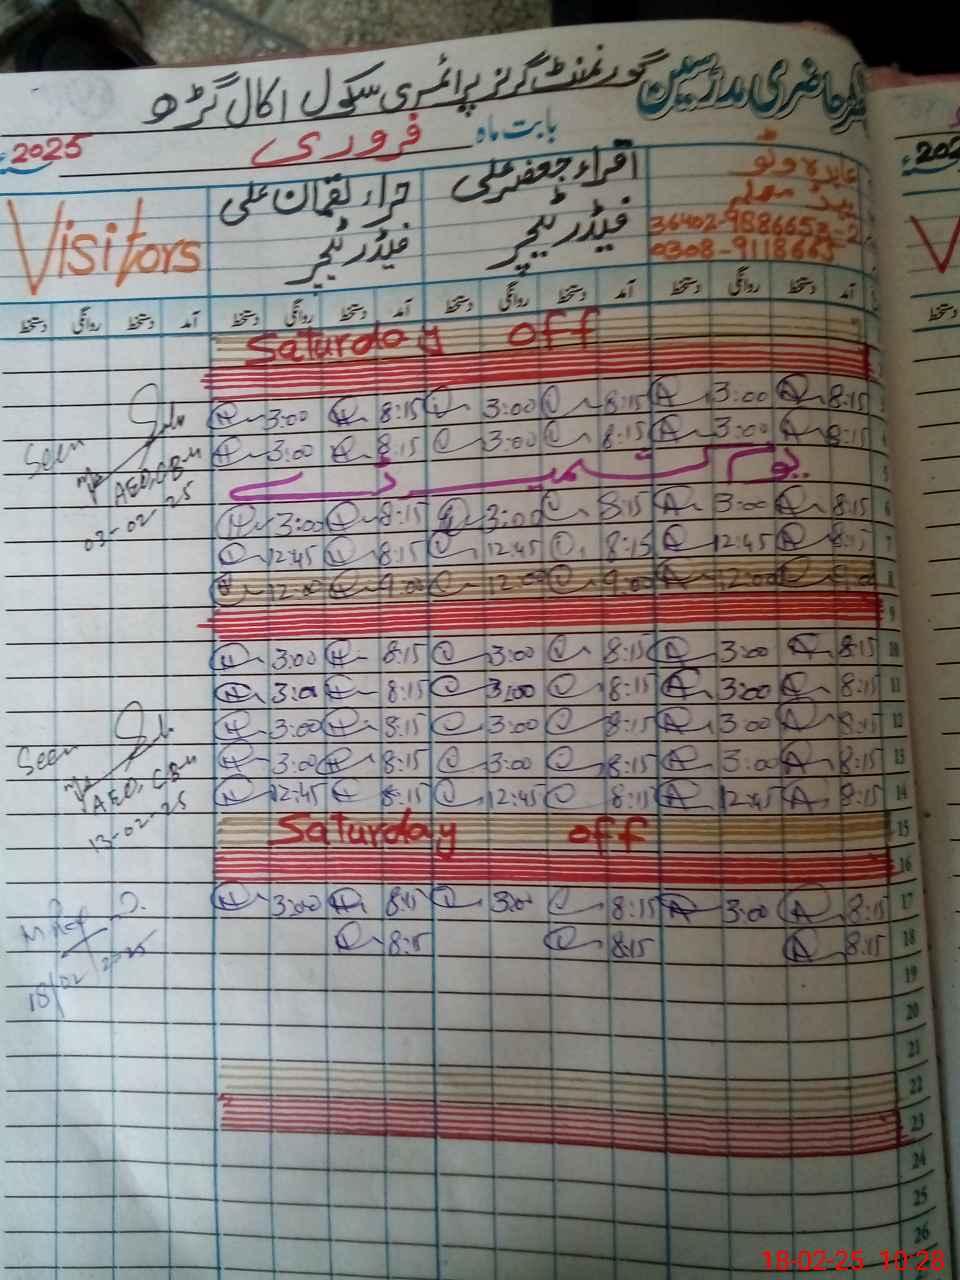 رجسٹر حاضری مدرسین گورنمنٹ گرلز پرائمری سکول اکال گڑھ
بابت ماہ فروری 2025ء
عابدہ وٹو
ہیڈ معلمہ
36402-9886653-2
0308-9118665
اقراء جعفر علی
فیڈر ٹیچر
حراء لقمان علی
فیڈر ٹیچر
Visitors
آمد دستخط روانگی دستخط آمد دستخط روانگی دستخط آمد دستخط روانگی دستخط آمد دستخط روانگی دستخط
Saturday off
8:15 3:00 8:15 3:00 8:15 3:00
4 8:15 3:00 8:15 3:00 8:15 3:00
Seen
AEO, CB-II
03-02-25
5 یوم کشمیر ڈے
6 8:15 3:00 8:15 3:00 8:15 3:00
7 8:15 12:45 8:15 12:45 8:15 12:45
8 9:00 12:00 9:00 12:00 9:00 12:00
9
10 8:15 3:00 8:15 3:00 8:15 3:00
11 8:15 3:00 8:15 3:00 8:15 3:00
12 8:15 3:00 8:15 3:00 8:15 3:00
13 8:15 3:00 8:15 3:00 8:15 3:00
14 8:15 12:45 8:15 12:45 8:15 12:45
Seen
AEO, CB-II
13-02-25
15 Saturday off
16
17 8:15 3:00 8:15 3:00 8:15 3:00
18 8:15 8:15 8:15
18/02/2025
19
20
21
22
23
24
25
26
18-02-25 10:28